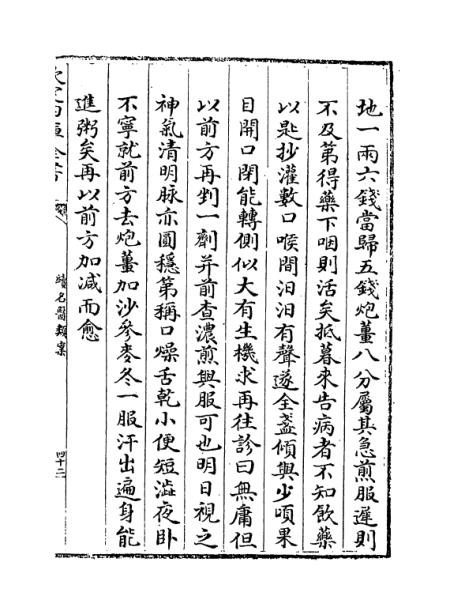 地一兩六錢當歸五錢炮薑八分屬其急煎服遲則
不及第得藥下咽則活矣抵暮來告病者不知飲藥
以匙抄灌數口喉間汨汨有聲遂全盞傾與少頃果
目開口閉能轉側似大有生機求再往診曰無庸但
以前方再剉一劑并前查濃煎與服可也明日視之
神氣清明脉亦圓穩第稱口燥舌乾小便短澁夜卧
不寧就前方去炮薑加沙參麥冬一服汗出遍身能
進粥矣再以前方加減而愈
欽定四庫全書
續名醫類案
四十二